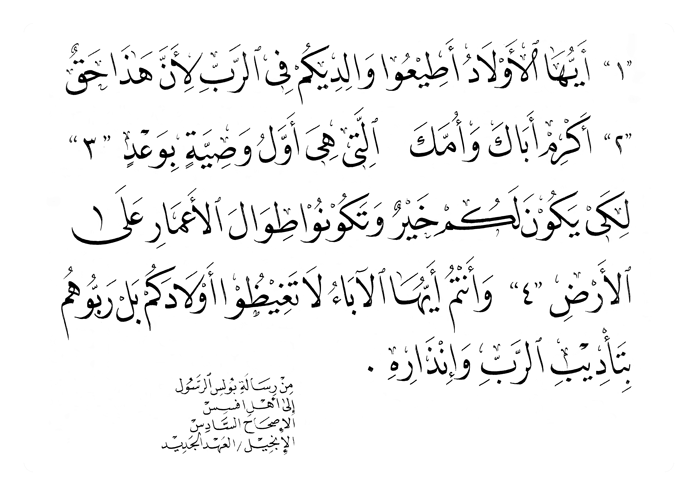 "١" أَيُّهَا ٱلْأَوْلَادُ أَطِيعُوا وَالِدِيكُمْ فِي ٱلرَّبِّ لِأَنَّ هَذَا حَقٌّ
"٢" أَكْرِمْ أَبَاكَ وَأُمَّكَ ٱلَّتِي هِيَ أَوَّلُ وَصِيَّةٍ بِوَعْدٍ "٣"
لِكَيْ يَكُونَ لَكُمْ خَيْرٌ وَتَكُونُوا طِوَالَ ٱلأَعْمَارِ عَلَى
ٱلأَرْضِ "٤" وَأَنْتُمْ أَيُّهَا ٱلآبَاءُ لَا تَغِيظُوا أَوْلَادَكُمْ بَلْ رَبُّوهُمْ
بِتَأْدِيبِ ٱلرَّبِّ وَإِنْذَارِهِ .
مِنْ رِسَالَةِ بُولسِ ٱلرَّسُول
إِلَى أَهْلِ افسسْ
الإِصحَاح السَّادِسْ
الإِنْجِيْل / العَهْد الجَدِيْد